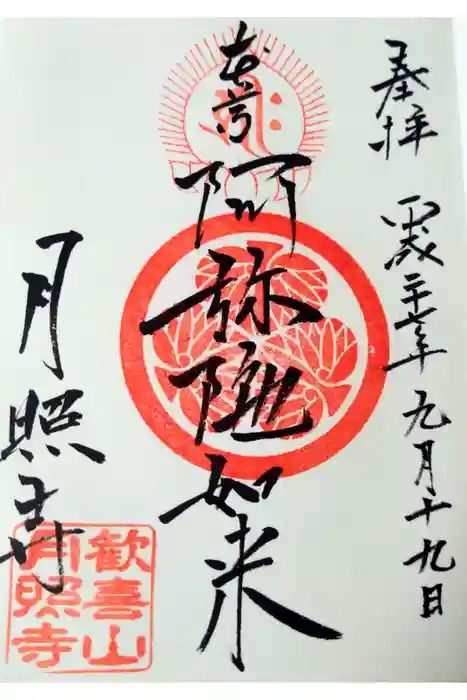 奉拝 平成二十六年九月十九日
本尊
阿弥陀如来
月照寺
歓喜山
月照寺